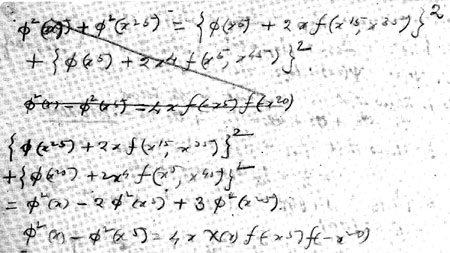 φ²(x) + φ²(x²⁵) = {φ(x⁵) + 2x f(x¹⁵, x³⁵)}²
+ {φ(x⁵) + 2x⁴ f(x⁵, x⁴⁵)}²
φ²(x) − φ²(x⁵) = 4x f(x⁵) f(x²⁰)
{φ(x²⁵) + 2x f(x¹⁵, x³⁵)}²
+ {φ(x²⁵) + 2x⁴ f(x⁵, x⁴⁵)}²
= φ²(x) − 2φ²(x⁵) + 3φ²(x²⁵)
φ²(x) − φ²(x⁵) = 4x χ(x) f(−x⁵) f(−x²⁰)